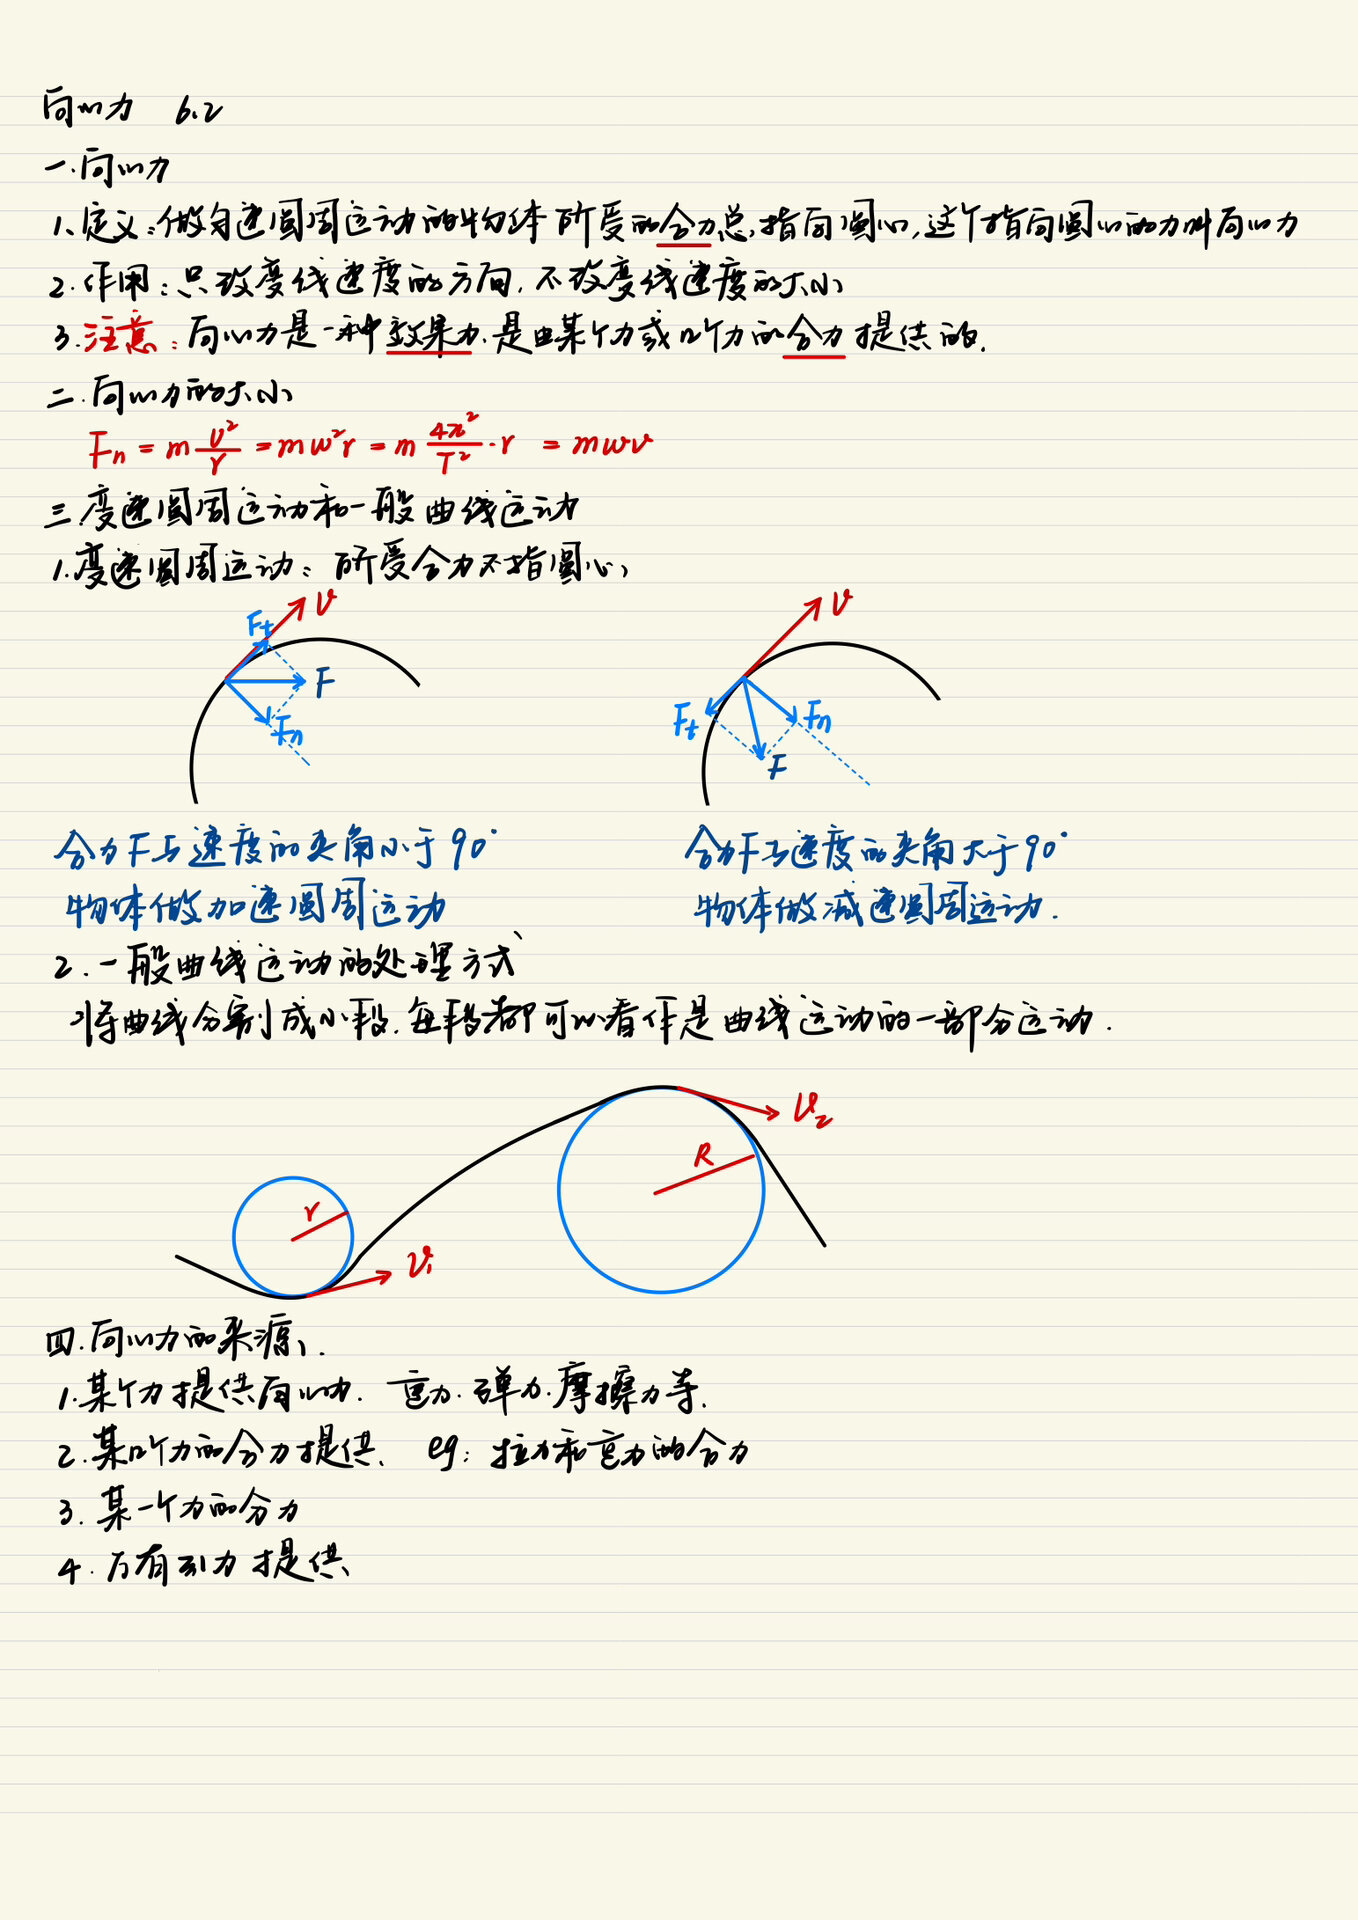 向心力 6.2
一.向心力
1.定义:做匀速圆周运动的物体所受的合力总指向圆心,这个指向圆心的力叫向心力
2.作用:只改变线速度的方向,不改变线速度的大小
3.注意:向心力是一种效果力.是由某个力或几个力的合力提供的.
二.向心力的大小
Fn = m v²/r = mw²r = m 4π²/T² · r = mwv
三.变速圆周运动和一般曲线运动
1.变速圆周运动:所受合力不指圆心
v
Ft
F
Fn
v
Ft
Fn
F
合力F与速度的夹角小于90° 合力F与速度的夹角大于90°
物体做加速圆周运动 物体做减速圆周运动.
2.一般曲线运动的处理方式
将曲线分割成小段.每段都可以看作是曲线运动的一部分运动.
v₂
R
r
v₁
四.向心力的来源.
1.某个力提供向心力. 重力.弹力.摩擦力等.
2.某几个力的合力提供. eg:拉力和重力的合力
3.某一个力的分力
4.万有引力提供